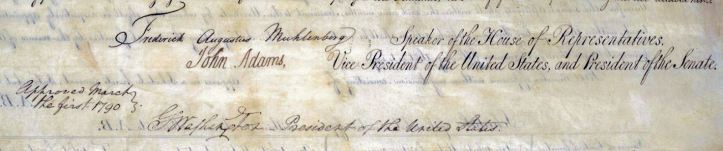 Frederick Augustus Muhlenberg Speaker of the House of Representatives.
John Adams, Vice President of the United States, and President of the Senate.
Approved March
the first 1790
G:Washington President of the United States.